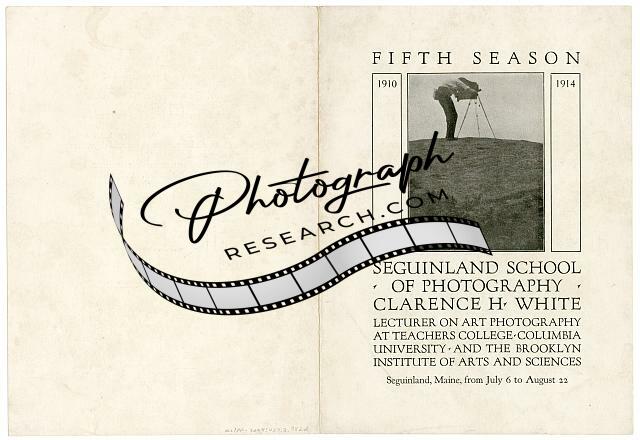 FIFTH SEASON
1910
1914
Photograph
RESEARCH.COM
SEGUINLAND SCHOOL
OF PHOTOGRAPHY
CLARENCE H· WHITE
LECTURER ON ART PHOTOGRAPHY
AT TEACHERS COLLEGE·COLUMBIA
UNIVERSITY·AND THE BROOKLYN
INSTITUTE OF ARTS AND SCIENCES
Seguinland, Maine, from July 6 to August 22